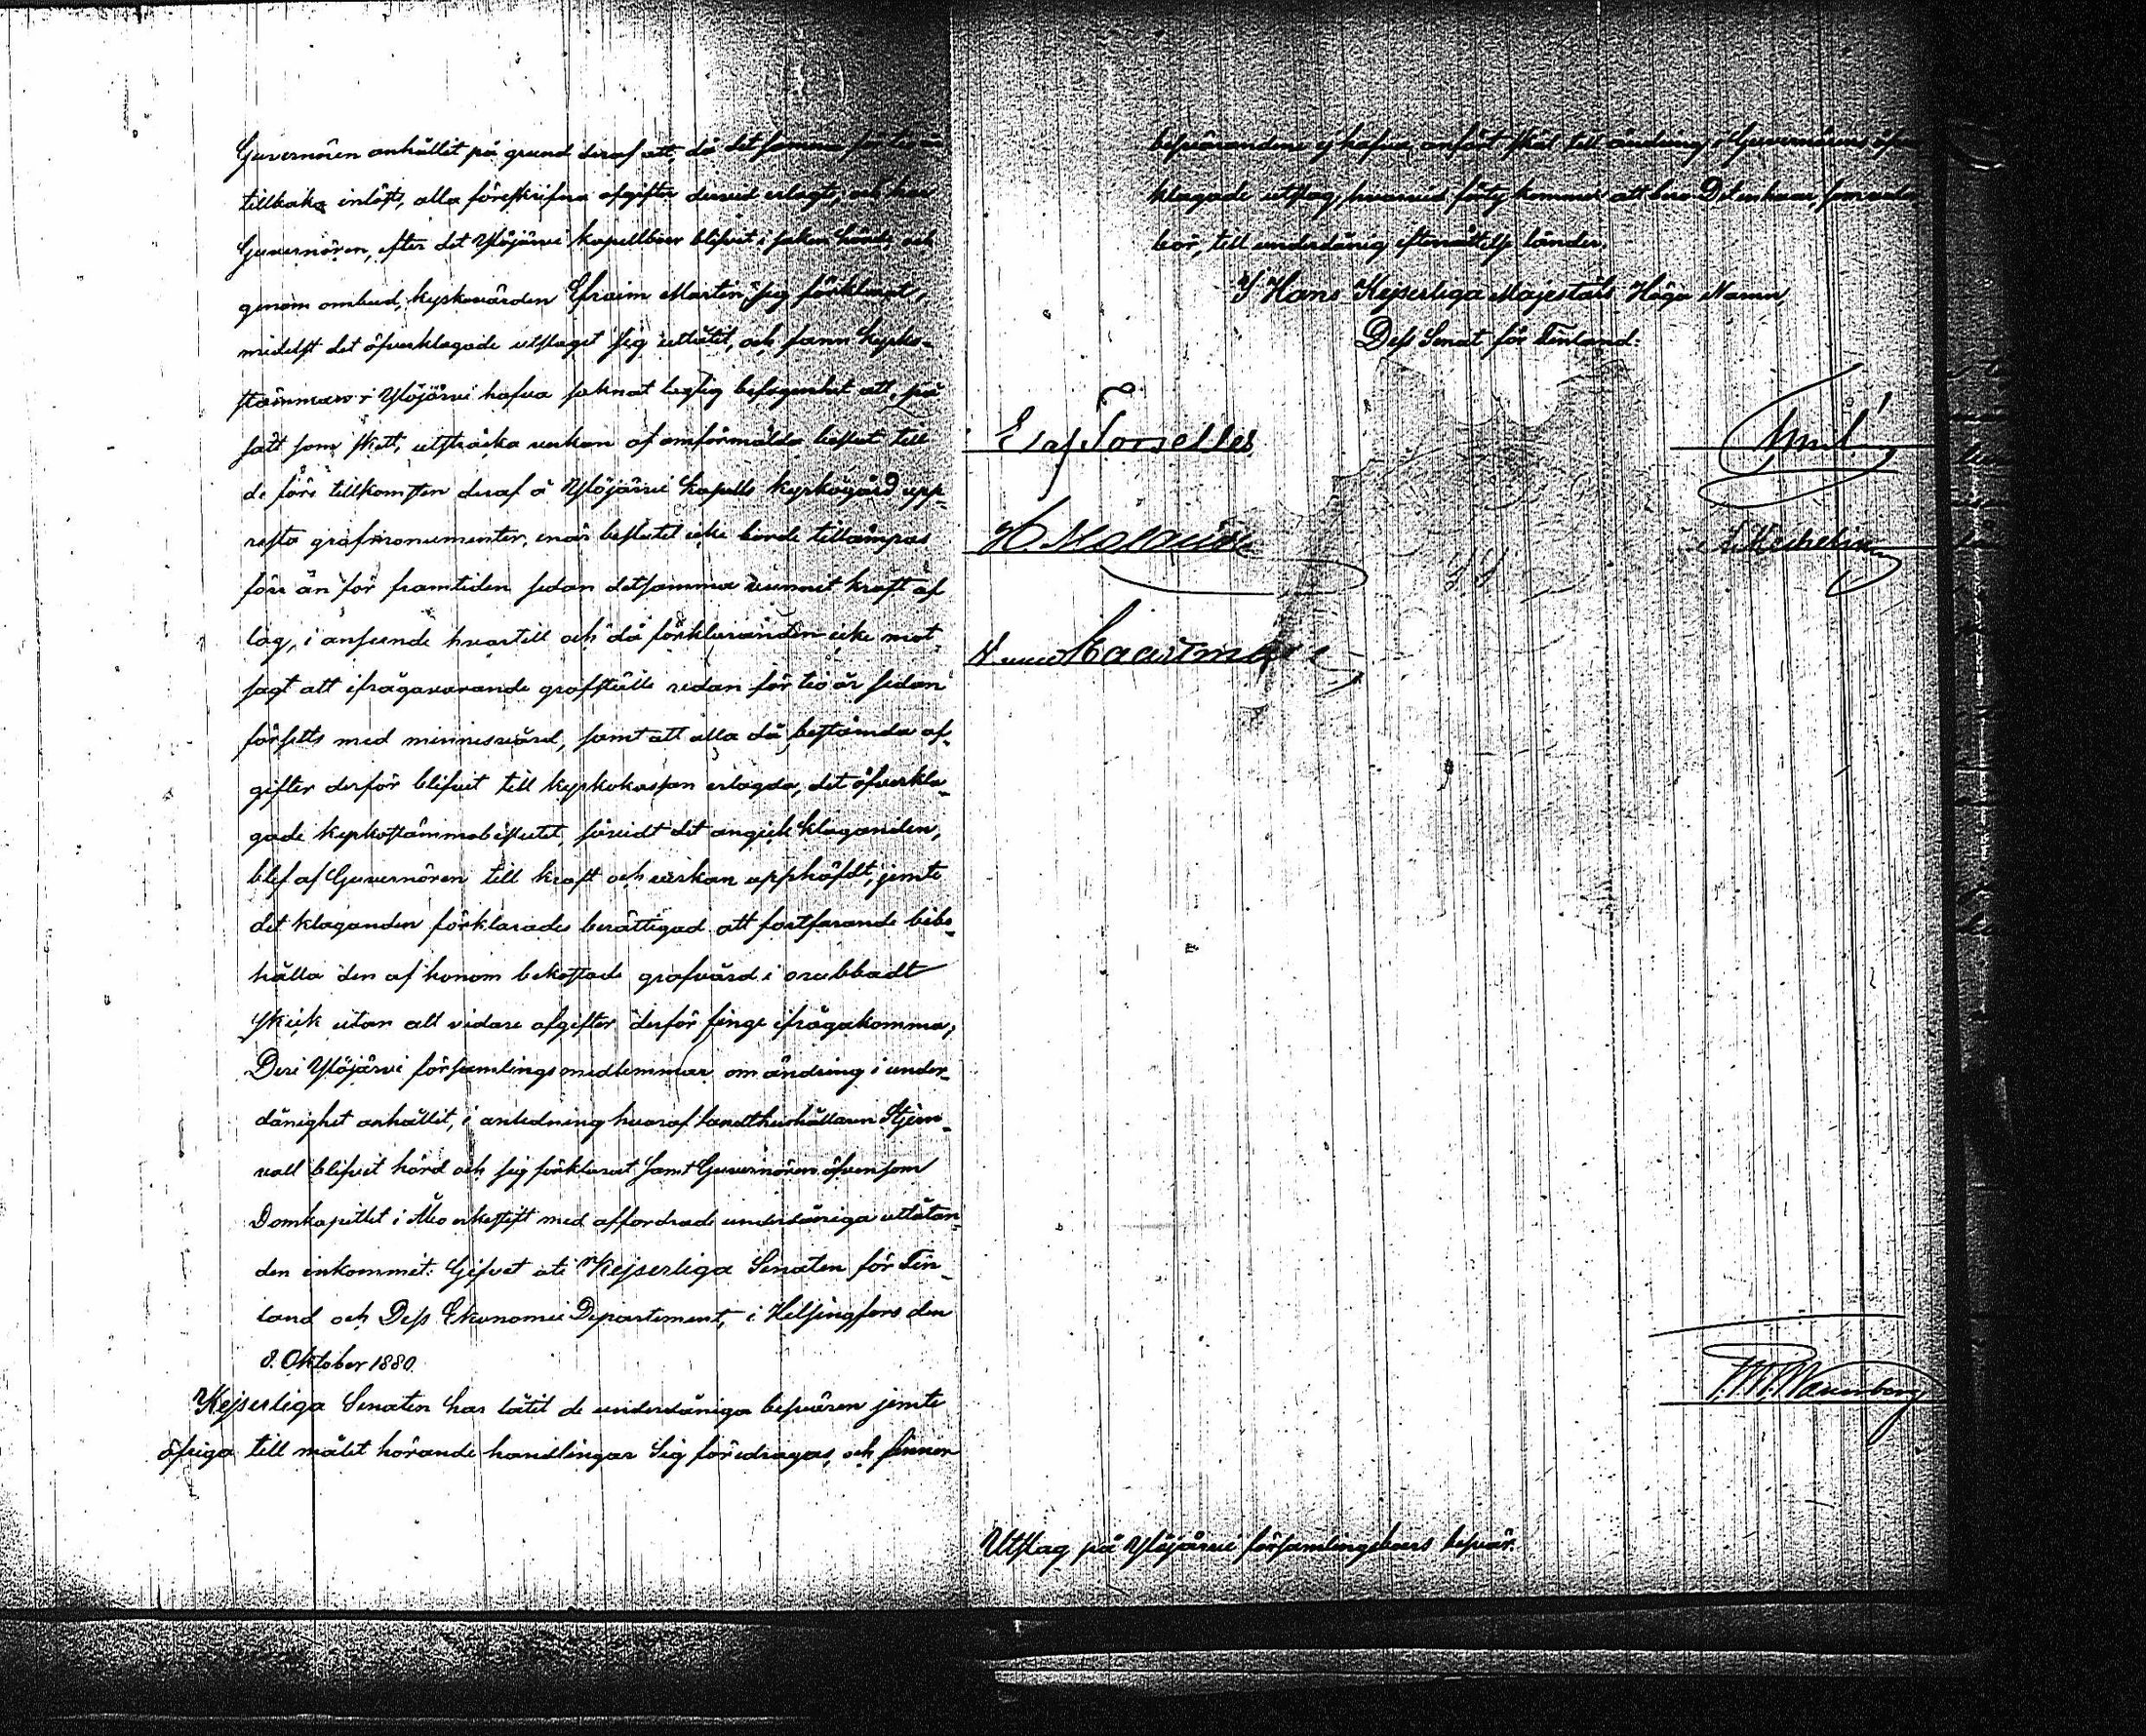 Guvernören anhållit på grund deraf att, då det samma för tio år
tillbaka inlöst, alla föreskrifna afgifter dervid erlagts, och har
Guvernören, efter det Ylöjärvi kapellboer blifvit i saken hörde och
genom ombud, kyrkovärden Efraim Marten sig förklarat,
medelst det öfverklagade utslaget sig utlåtit, och fann kyrko-
stämman i Ylöjärvi hafva saknat laglig befogenhet att, på
sätt som skett, utsträcka verkan af omförmälda beslut till
de före tillkomsten deraf å Ylöjärvi kapells kyrkogård upp-
resta grafmonumenter, enär beslutet icke borde tillämpas
förr än för framtiden sedan detsamma vunnit kraft af
lag, i anseende hvartill och då förklaranden icke mot-
sagt att ifrågavarande grafställe redan för tio år sedan
försetts med minnesvård, samt att alla då bestämda af-
gifter derför blifvit till kyrkokassan erlagda, det öfverkla-
gade kyrkostämmobeslutet, såvidt det angick klaganden,
blef af Guvernören till kraft och verkan upphäfdt, jemte
det klaganden förklarades berättigad att fortfarande bibe-
hålla den af honom bekostade grafvård i orubbadt
skick utan att vidare afgifter derför finge ifrågakomma;
Deri Ylöjärvi församlingsmedlemmar om ändring i under-
dånighet anhållit, i anledning hvaraf landthushållaren Stjern-
vall blifvit hörd och sig förklarat samt Guvernören äfvensom
Domkapitlet i Åbo erkestift med affordrade underdåniga utlåtan-
den inkommit. Gifvet uti Kejserliga Senaten för Fin-
land och Dess Ekonomie Departement, i Helsingfors den
8. Oktober 1880.
Kejserliga Senaten har låtit de underdåniga besvären jemte
öfriga till målet hörande handlingar Sig föredragas, och finner
besvärandene ej hafva anfört skäl till ändring i Guvernörens öfver
klagade utslag, hvarvid förty kommer att bero Det enhvar, som veder
bör, till underdånig efterrättelse länder.
I Hans Kejserliga Majestäts Höga Namn,
Dess Senat för Finland:
E af Forselles
H. Molander
L Mechelin
von Haartman
Utslag på Ylöjärvi församlingsboers besvär.